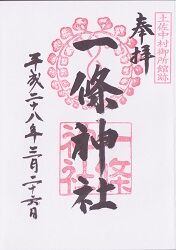 奉拝
土佐中村御所館跡
一條神社
一條神社
平成二十八年三月二十六日